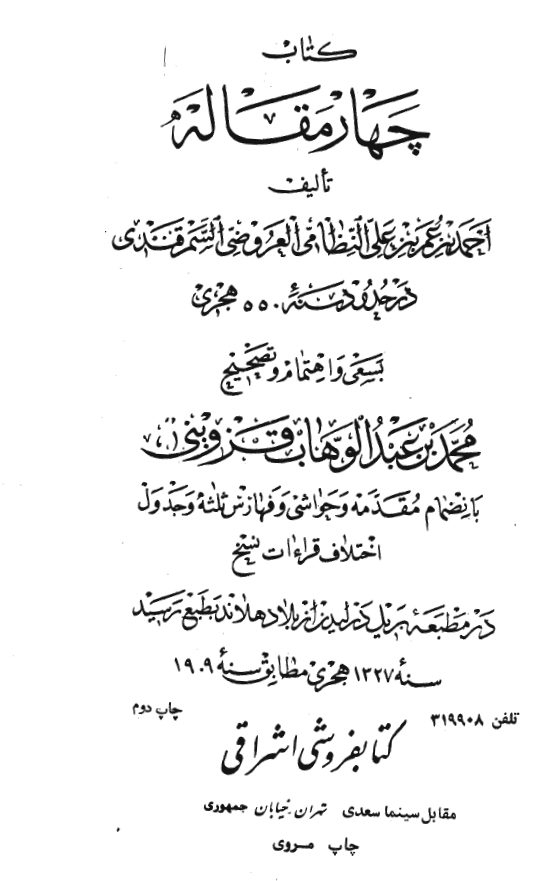 کتاب
چهار مقاله
تألیف
احمد بن عمر بن علی النظامی العروضی السمرقندی
در حدود سنهٔ ۵۵۰ هجری
بسعی و اهتمام و تصحیح
محمد بن عبدالوهاب قزوینی
بانضمام مقدمه و حواشی و فهارس ثلثه و جدول
اختلاف قراءات نسخ
در مطبعهٔ بریل در لیدن از بلاد هلاند بطبع رسید
سنهٔ ۱۳۲۷ هجری مطابق سنهٔ ۱۹۰۹
تلفن ۳۱۹۹۰۸ چاپ دوم
کتابفروشی اشراقی
مقابل سینما سعدی تهران خیابان جمهوری
چاپ مروی